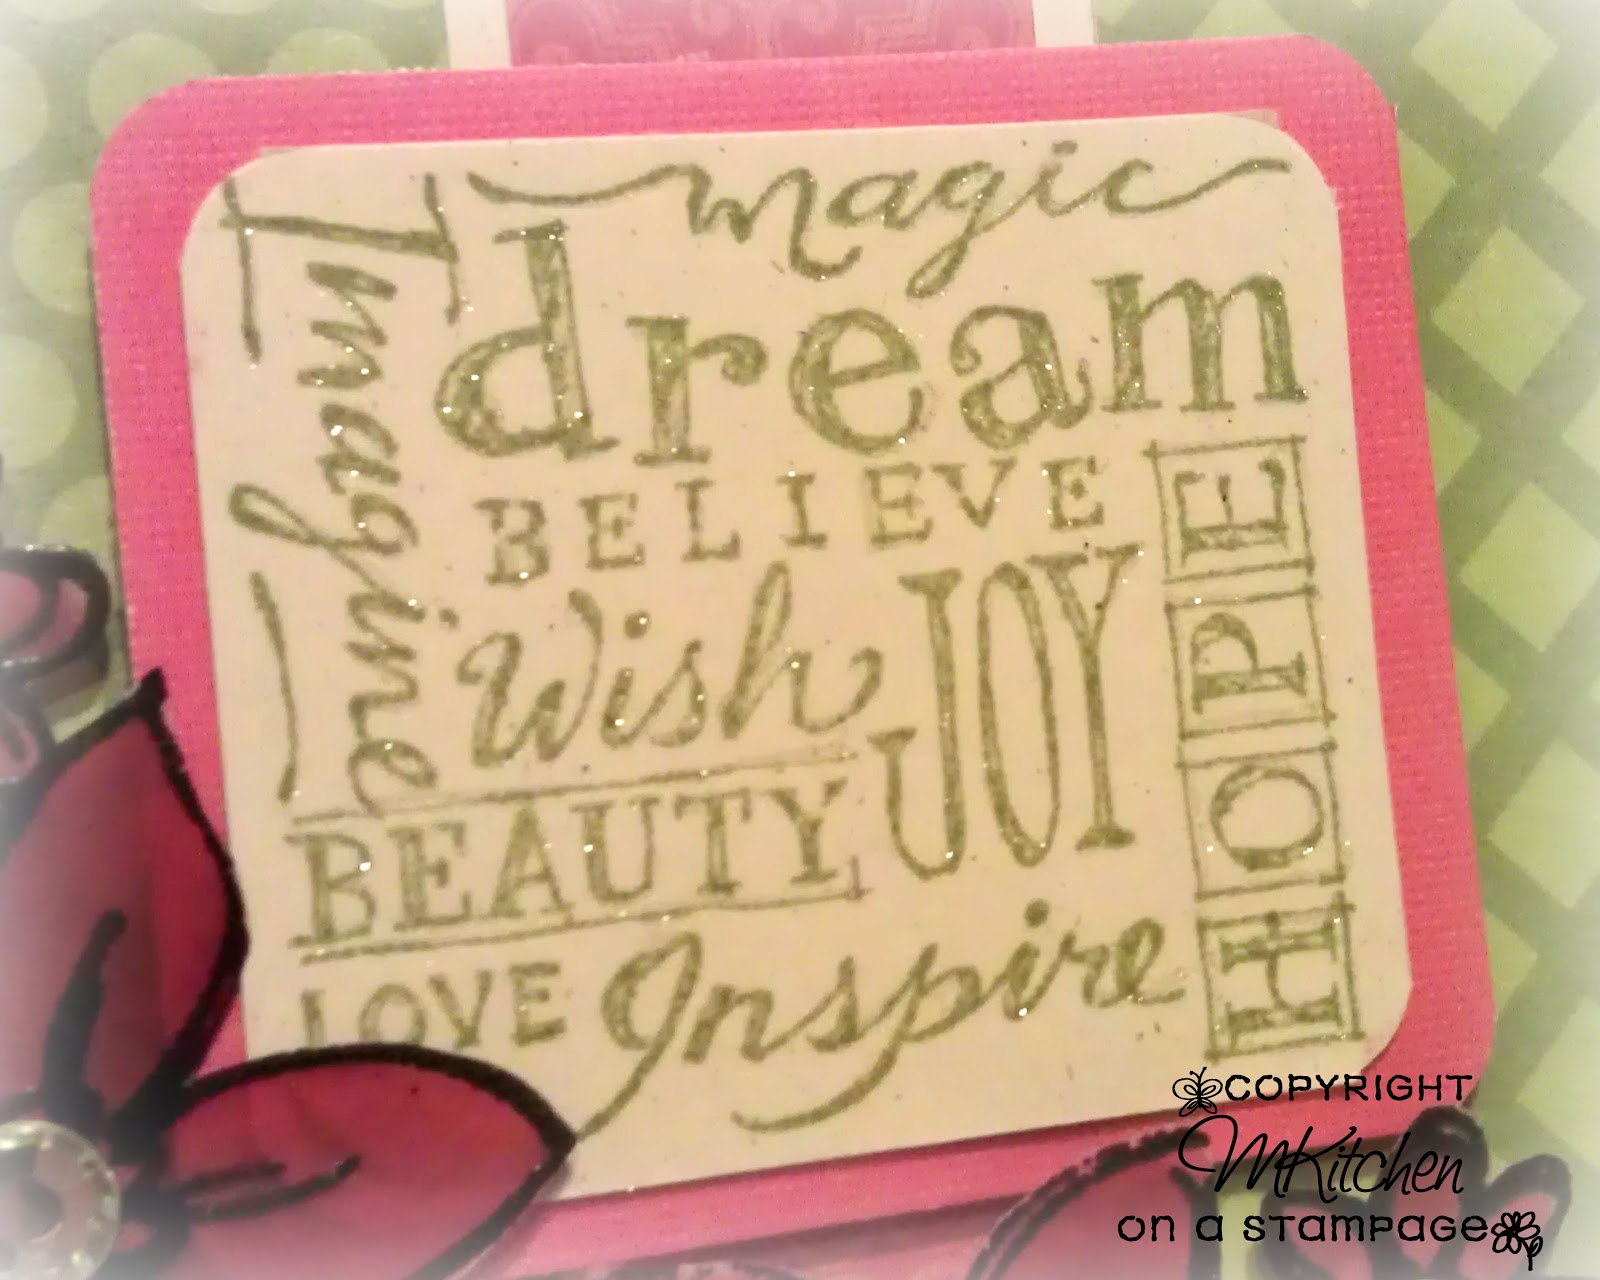 Imagine
magic
dream
BELIEVE
Wish
JOY
HOPE
BEAUTY
LOVE
Inspire
COPYRIGHT
MKitchen
ON A STAMPAGE